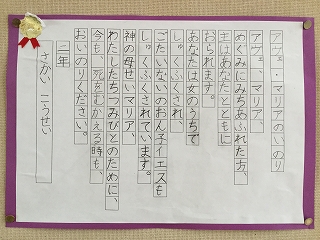 アヴェ・マリアのいのり
アヴェ、マリア、
めぐみにみちあふれた方、
主はあなたとともに
おられます。
あなたは女のうちで
しゅくふくされ、
ごたいないのおん子イエスも
しゅくふくされています。
神の母せいマリア、
わたしたちつみびとのために、
今も、死をむかえる時も、
おいのりください。
二年
さかい こうせい